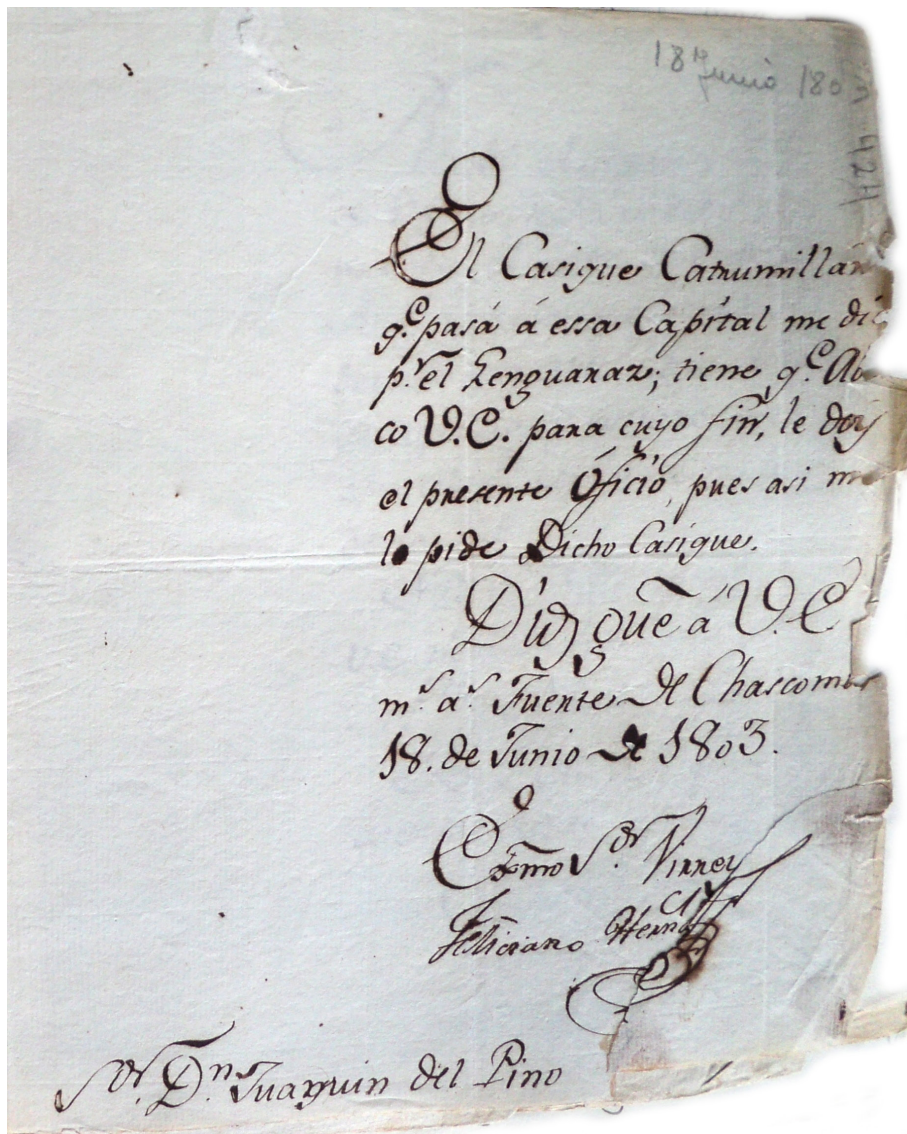 18 Junio 180
424
El Casique Catrumillán
q.e pasa á essa Capital me dic
p.r el Lenguaraz; tiene q.e
co V.E. para cuyo fin, le doy
el presente Oficio, pues asi me
lo pide Dicho Casique.
Dios gue á V.E
m.s a.s Fuerte de Chascomus
18. de Junio de 1803.
Exmo Sor. Virrey
Feliciano Hernz
Sor. Dn. Juaquin del Pino